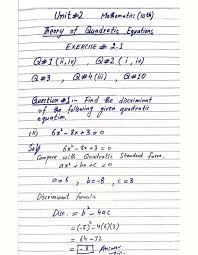 Unit #2 Mathematics (10th)
Theory of Quadratic Equations
EXERCISE # 2.1
Q#1 (ii, iv) , Q#2 (i, iv)
Q#3 , Q#4 (iii) , Q#10
Question #1:- Find the discriminant
of the following given quadratic
equation.
(ii) 6x² - 8x + 3 = 0
Solf 6x² - 8x + 3 = 0
Compare with Quadratic Standard form.
ax² + bx + c = 0
a = 6 , b = -8 , c = 3
Discriminant formula
Disc. = b² - 4ac
= (-8)² - 4(6)(3)
= 64 - 72
= -8 Answer